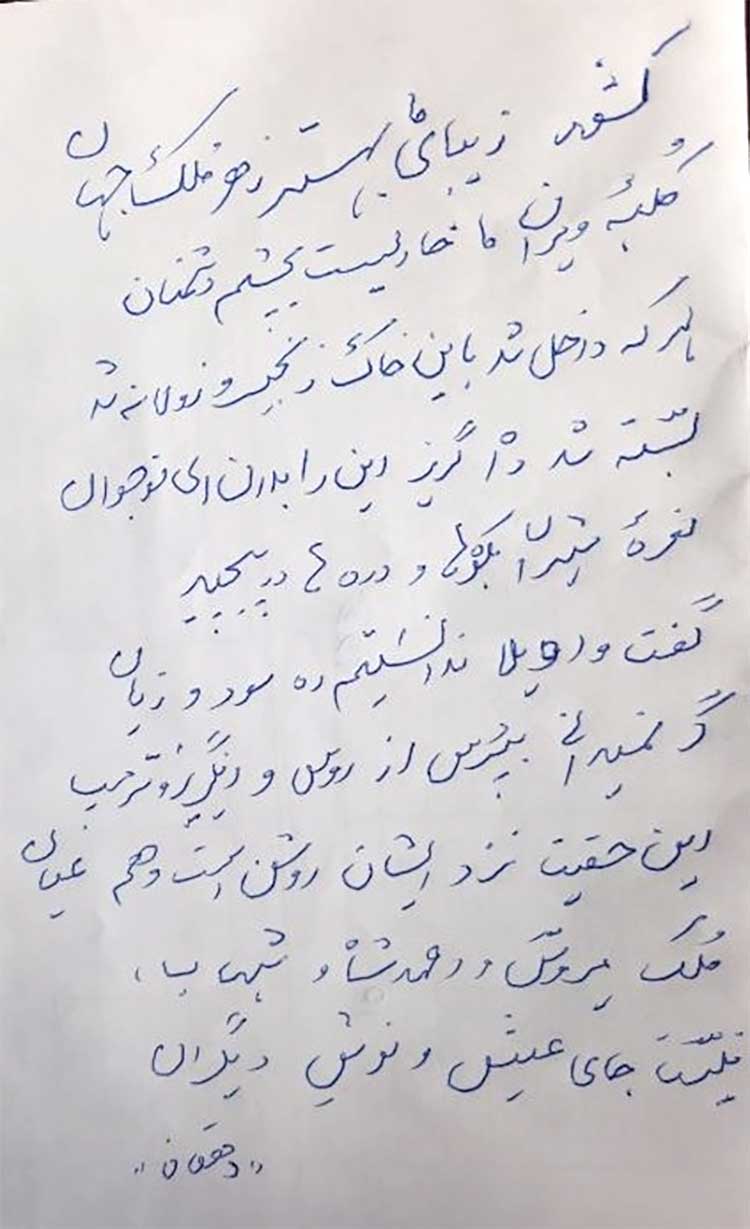 کشور زیبای ما بهتر ز هر ملک جهان
کلبهٔ ویران ما خاریست بچشم دشمنان
هر که داخل شد باین خاک زنجیر و زولانه شد
بسته شد راه گریز این را بدان ای نوجوان
نعرهٔ شیران بکوه‌ها و دره ها در پیچید
گفت واویلا ندانستیم ره سود و زیان
گر نمیدانی بپرس از روس و انگریز و ترمپ
این حقیقت نزد ایشان روشن است وهم عیان
ملک میرویس و احمدشاه و شهاب
نیست جای عیش و نوش دیگران
"دهقان"